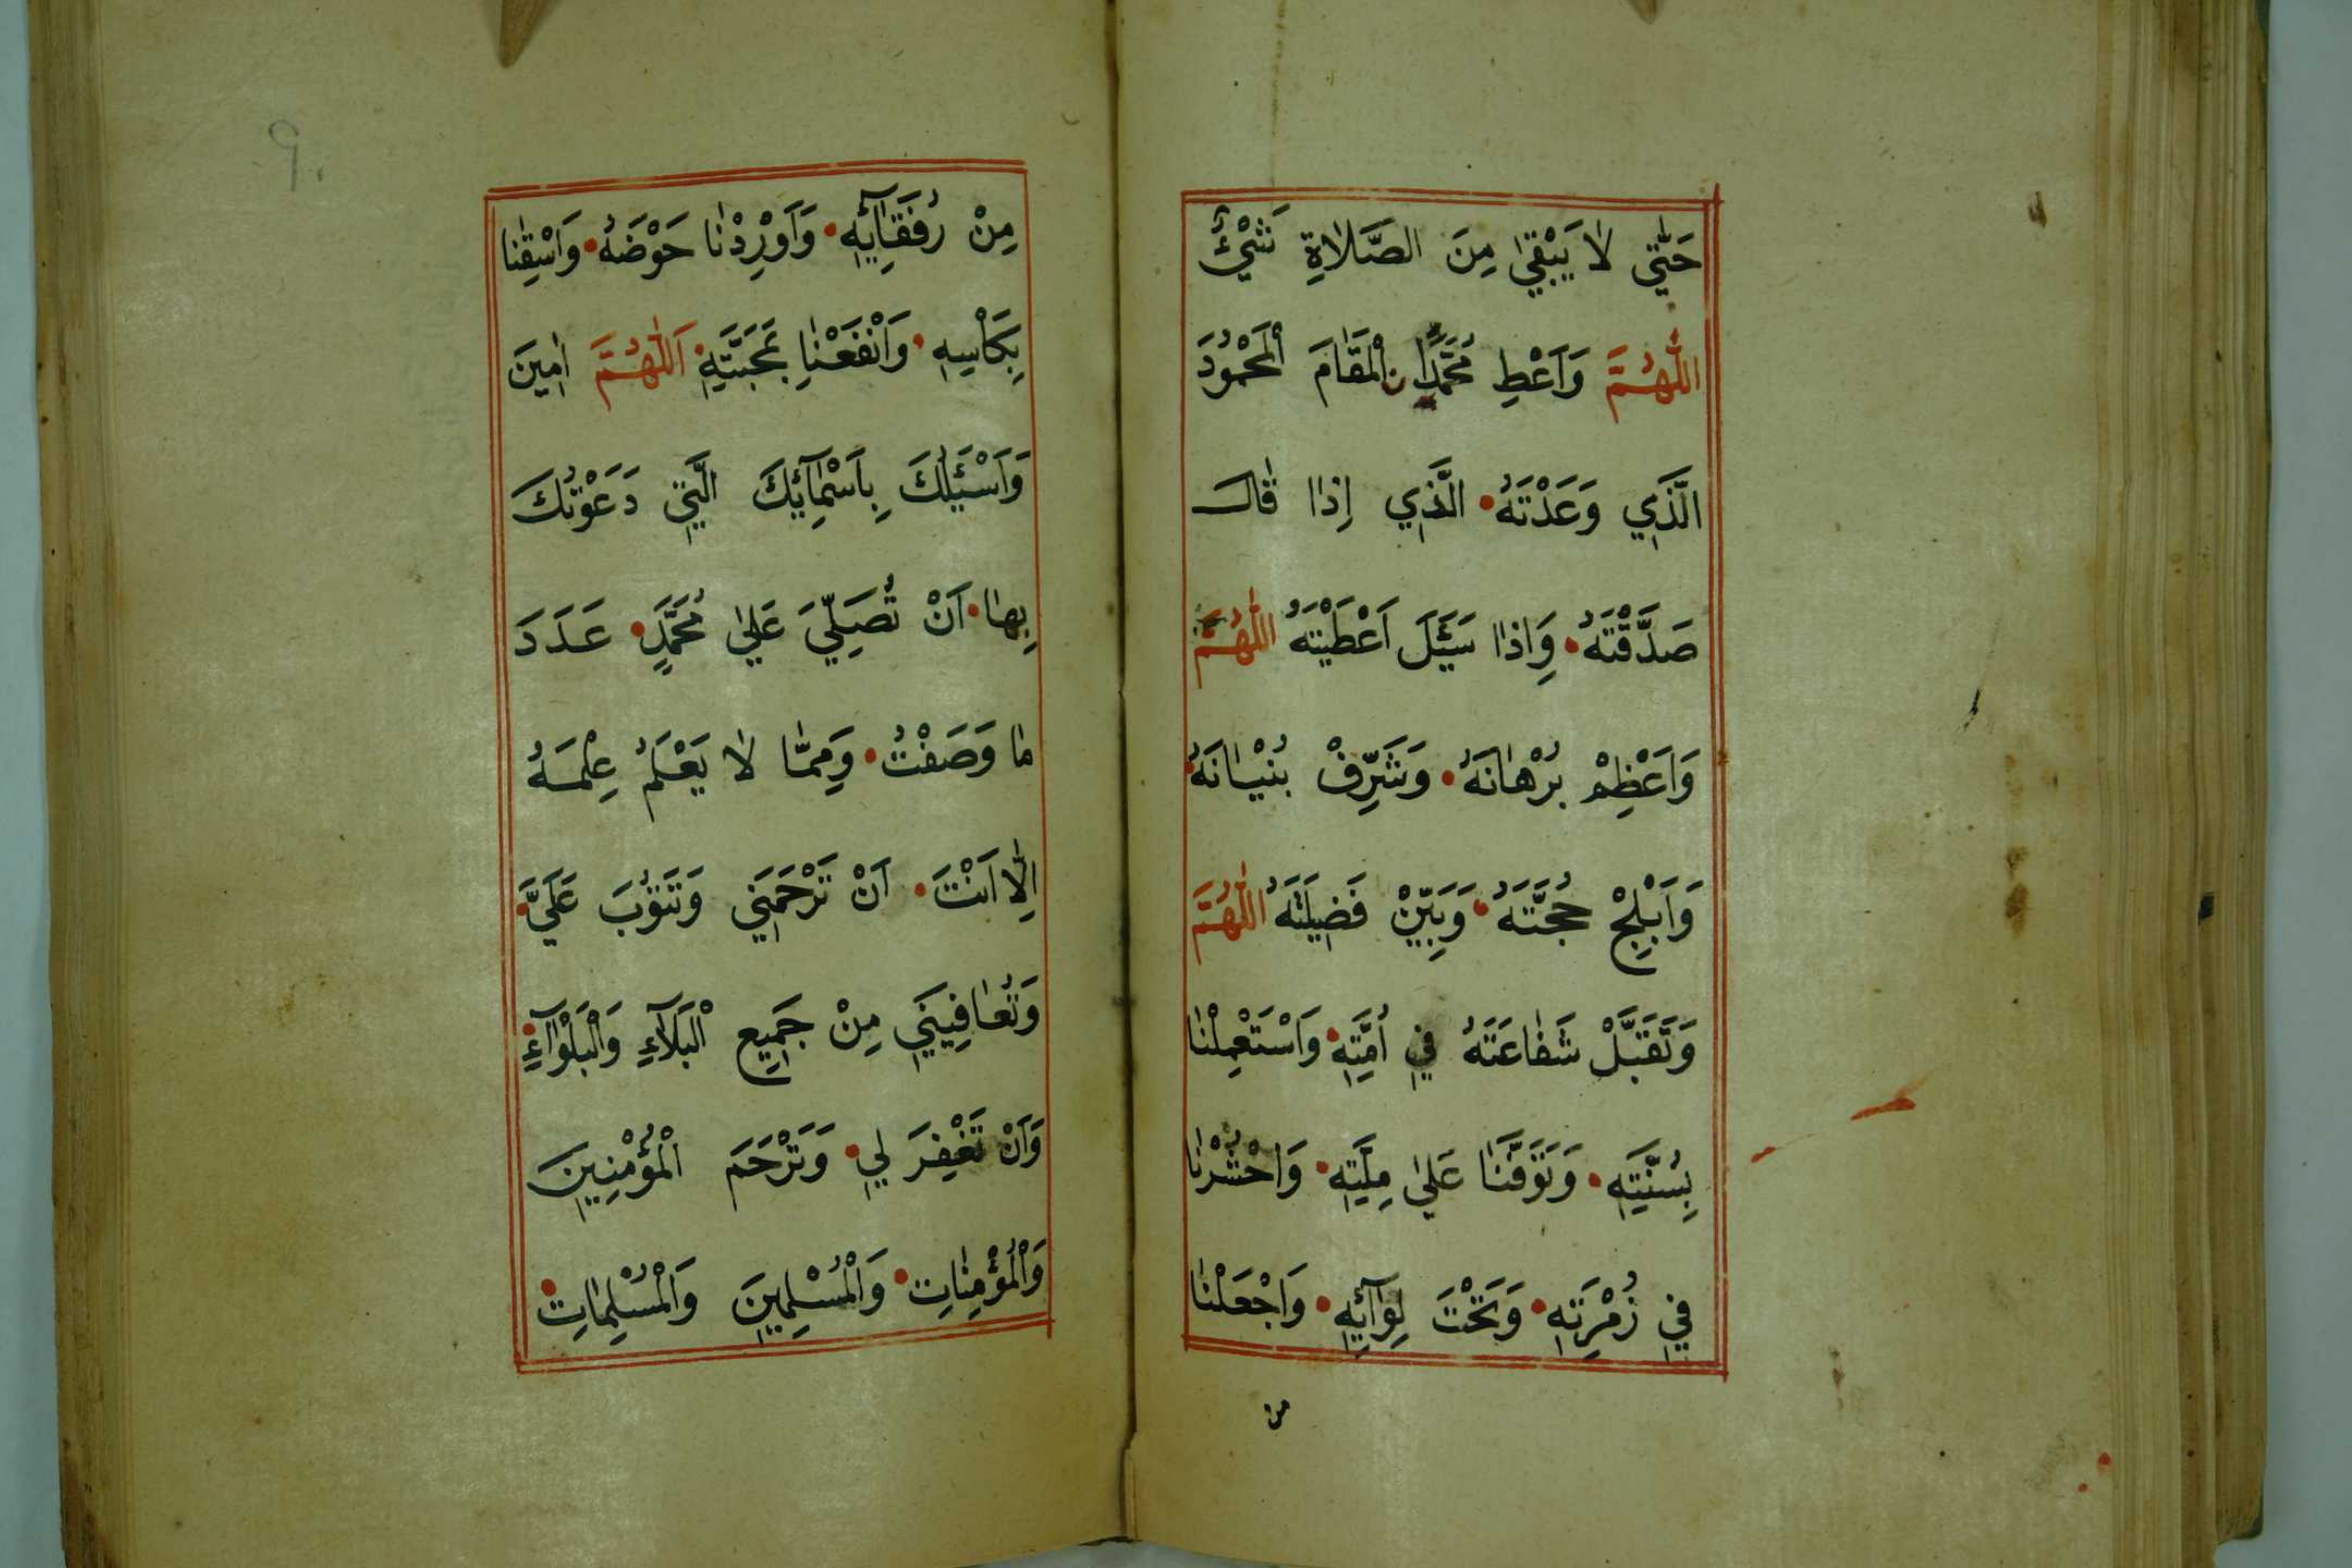 حَتّٰي لَا يَبْقٰي مِنَ الصَّلَاةِ شَيْئٌ
اَللّٰهُمَّ وَاَعْطِ مُحَمَّدًا نِ الْمَقَامَ الْمَحْمُودَ
الَّذِي وَعَدْتَهُ • الَّذِي اِذَا قَالَ
صَدَّقْتَهُ • وَاِذَا سَئَلَ اَعْطَيْتَهُ اَللّٰهُمَّ
وَاَعْظِمْ بُرْهَانَهُ • وَشَرِّفْ بُنْيَانَهُ •
وَاَبْلِجْ حُجَّتَهُ • وَبَيِّنْ فَضِيلَتَهُ اَللّٰهُمَّ
وَتَقَبَّلْ شَفَاعَتَهُ فِي اُمَّتِهِ • وَاسْتَعْمِلْنَا
بِسُنَّتِهِ • وَتَوَفَّنَا عَلٰي مِلَّتِهِ • وَاحْشُرْنَا
فِي زُمْرَتِهِ • وَتَحْتَ لِوَآئِهِ • وَاجْعَلْنَا
من
٩٠
مِنْ رُفَقَآئِهِ • وَاَوْرِدْنَا حَوْضَهُ • وَاسْقِنَا
بِكَاْسِهِ • وَانْفَعْنَا بِمَحَبَّتِهِ • اَللّٰهُمَّ اٰمِينَ
وَاَسْئَلُكَ بِاَسْمَآئِكَ الَّتِي دَعَوْتُكَ
بِهَا • اَنْ تُصَلِّيَ عَلٰي مُحَمَّدٍ • عَدَدَ
مَا وَصَفْتُ • وَمِمَّا لَا يَعْلَمُ عِلْمَهُ
اِلَّا اَنْتَ • اَنْ تَرْحَمَنِي وَتَتُوبَ عَلَيَّ •
وَتُعَافِيَنِي مِنْ جَمِيعِ الْبَلَآءِ وَالْبَلْوَآءِ •
وَاَنْ تَغْفِرَ لِي • وَتَرْحَمَ الْمُؤْمِنِينَ
وَالْمُؤْمِنَاتِ • وَالْمُسْلِمِينَ وَالْمُسْلِمَاتِ •